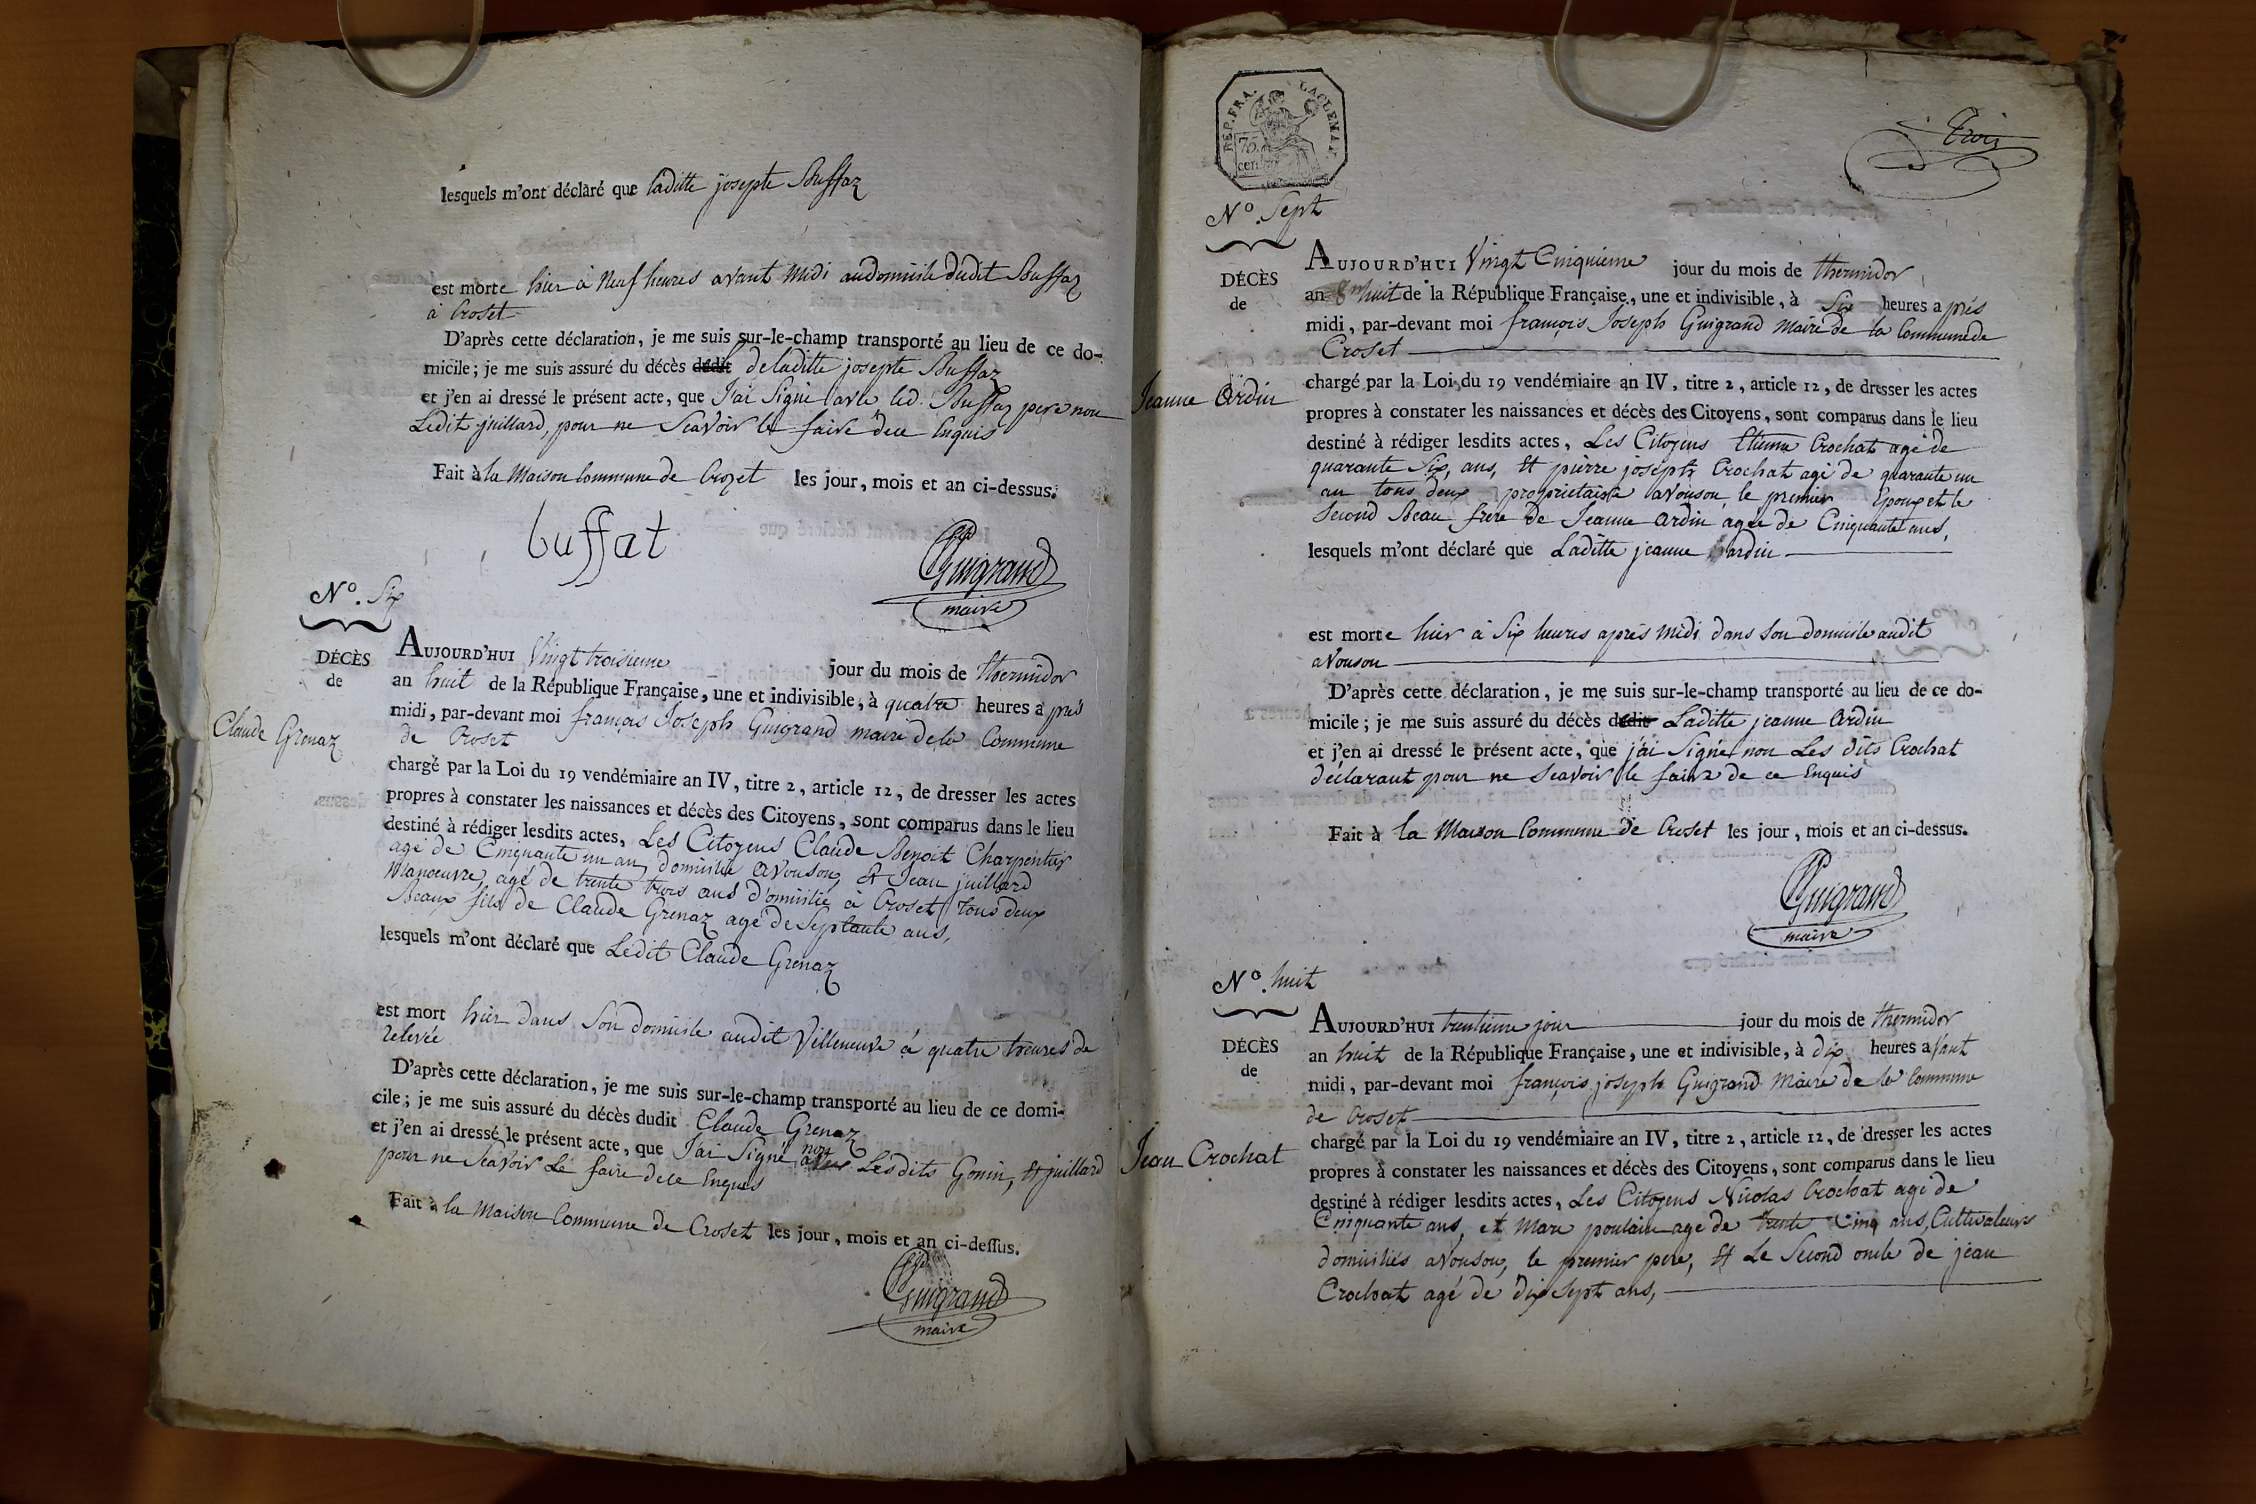 lesquels m'ont déclaré que laditte josepte Buffaz
est morte hier à Neuf heures avant midi au domicile dudit Buffaz
à Croset
D'après cette déclaration, je me suis sur-le-champ transporté au lieu de ce do-
micile; je me suis assuré du décès dudit de laditte josepte Buffaz
et j'en ai dressé le présent acte, que J'ai Signé avec led. Buffaz pere non
Ledit juillard, pour ne Scavoir le faire dece Enquis
Fait à la Maison Commune de Crozet les jour, mois et an ci-dessus.
buffat
Guigrand
maire
N.º Six
DÉCÈS
de
Claude Grenaz
AUJOURD'HUI Vingt troisieme jour du mois de thermidor
an huit de la République Française, une et indivisible, à quatre heures a prés
midi, par-devant moi françois Joseph Guigrand maire dela Commune
de Croset
chargé par la Loi du 19 vendémiaire an IV, titre 2, article 12, de dresser les actes
propres à constater les naissances et décès des Citoyens, sont comparus dans le lieu
destiné à rédiger lesdits actes, Les Citoyens Claude Benoit Charpentier
agé de Cinquante un an domicilié avouson, Et Jean juillard
Manoeuvre, agé de trente trois ans domicilié à Croset tous deux
Beaux fils de Claude Grenaz agé de Septante ans,
lesquels m'ont déclaré que Ledit Claude Grenaz
est mort hier dans Son domicile audit Villeneuve à quatre heures de
relevée
D'après cette déclaration, je me suis sur-le-champ transporté au lieu de ce domi-
cile; je me suis assuré du décès dudit Claude Grenaz
et j'en ai dressé le présent acte, que J'ai Signé non Lesdits Gonin, Et juillard
pour ne Scavoir Le faire dece Enquis
Fait à la Maison Commune de Croset les jour, mois et an ci-dessus.
Guigrand
maire
RÉP. FRA.
75.
cent.
Trois
N.º Sept
DÉCÈS
de
Jeanne Ardin
AUJOURD'HUI Vingt Cinquieme jour du mois de thermidor
an huit de la République Française, une et indivisible, à Six heures a prés
midi, par-devant moi françois Joseph Guigrand maire de la Commune de
Croset
chargé par la Loi du 19 vendémiaire an IV, titre 2, article 12, de dresser les actes
propres à constater les naissances et décès des Citoyens, sont comparus dans le lieu
destiné à rédiger lesdits actes, Les Citoyens Etienne Crochat agé de
quarante Six, ans, Et pierre joseph Crochat agé de quarante un
an tous deux proprietaire avouson, le premier Epoux et le
Second Beau frere de Jeanne Ardin agée de Cinquante ans,
lesquels m'ont déclaré que Laditte jeanne ardin
est morte hier à Six heures aprés midi dans Son domicile audit
avouson
D'après cette déclaration, je me suis sur-le-champ transporté au lieu de ce do-
micile; je me suis assuré du décès dudit Laditte jeanne Ardin
et j'en ai dressé le présent acte, que j'ai Signé non Les dits Crochat
déclarant pour ne Scavoir le faire de ce Enquis
Fait à la Maison Commune de Croset les jour, mois et an ci-dessus.
Guigrand
maire
N.º huit
DÉCÈS
de
Jean Crochat
AUJOURD'HUI trentieme jour jour du mois de thermidor
an huit de la République Française, une et indivisible, à dix heures avant
midi, par-devant moi françois joseph Guigrand Maire de la Commune
de Croset
chargé par la Loi du 19 vendémiaire an IV, titre 2, article 12, de dresser les actes
propres à constater les naissances et décès des Citoyens, sont comparus dans le lieu
destiné à rédiger lesdits actes, Les Citoyens Nicolas Crochat agé de
Cinquante ans, et Marc poulain agé de trente Cinq ans, Cultivateurs
domiciliés avouson, le premier pere, Et Le Second oncle de jean
Crochat agé de dix Sept ans,